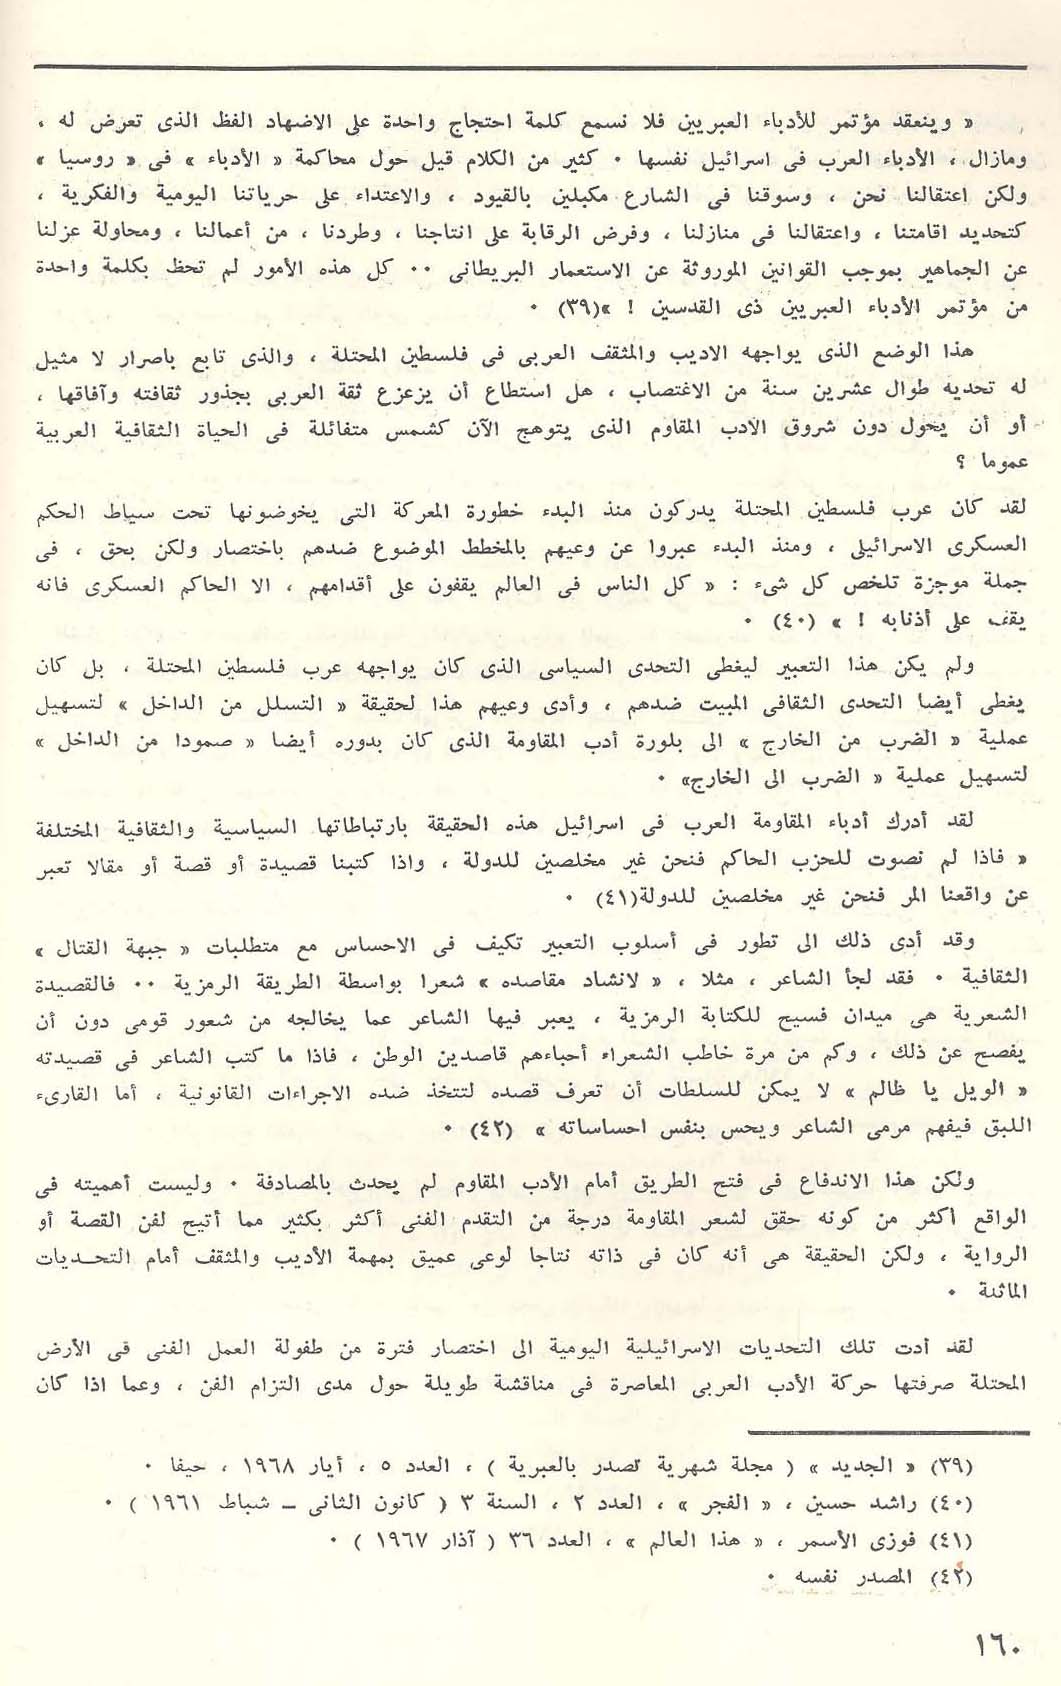 « وينعقد مؤتمر للأدباء العبريين فلا نسمع كلمة احتجاج واحدة على الاضهاد الفظ الذى تعرض له ،
ومازال ، الأدباء العرب فى اسرائيل نفسها ٠ كثير من الكلام قيل حول محاكمة « الأدباء » فى « روسيا »
ولكن اعتقالنا نحن ، وسوقنا فى الشارع مكبلين بالقيود ، والاعتداء على حرياتنا اليومية والفكرية ،
كتحديد اقامتنا ، واعتقالنا فى منازلنا ، وفرض الرقابة على انتاجنا ، وطردنا ، من أعمالنا ، ومحاولة عزلنا
عن الجماهير بموجب القوانين الموروثة عن الاستعمار البريطانى ٠٠ كل هذه الأمور لم تحظ بكلمة واحدة
من مؤتمر الأدباء العبريين ذى القدسين ! »(٣٩) ٠
هذا الوضع الذى يواجهه الاديب والمثقف العربى فى فلسطين المحتلة ، والذى تابع باصرار لا مثيل
له تحديه طوال عشرين سنة من الاغتصاب ، هل استطاع أن يزعزع ثقة العربى بجذور ثقافته وآفاقها ،
أو أن يحول دون شروق الادب المقاوم الذى يتوهج الآن كشمس متفائلة فى الحياة الثقافية العربية
عموما ؟
لقد كان عرب فلسطين المحتلة يدركون منذ البدء خطورة المعركة التى يخوضونها تحت سياط الحكم
العسكرى الاسرائيلى ، ومنذ البدء عبروا عن وعيهم بالمخطط الموضوع ضدهم باختصار ولكن بحق ، فى
جملة موجزة تلخص كل شىء : « كل الناس فى العالم يقفون على أقدامهم ، الا الحاكم العسكرى فانه
يقف على أذنابه ! » (٤٠) ٠
ولم يكن هذا التعبير ليغطى التحدى السياسى الذى كان يواجهه عرب فلسطين المحتلة ، بل كان
يغطى أيضا التحدى الثقافى المبيت ضدهم ، وأدى وعيهم هذا لحقيقة « التسلل من الداخل » لتسهيل
عملية « الضرب من الخارج » الى بلورة أدب المقاومة الذى كان بدوره أيضا « صمودا من الداخل »
لتسهيل عملية « الضرب الى الخارج» ٠
لقد أدرك أدباء المقاومة العرب فى اسرائيل هذه الحقيقة بارتباطاتها السياسية والثقافية المختلفة
« فاذا لم نصوت للحزب الحاكم فنحن غير مخلصين للدولة ، واذا كتبنا قصيدة أو قصة أو مقالا تعبر
عن واقعنا المر فنحن غير مخلصين للدولة(٤١) ٠
وقد أدى ذلك الى تطور فى أسلوب التعبير تكيف فى الاحساس مع متطلبات « جبهة القتال »
الثقافية ٠ فقد لجأ الشاعر ، مثلا ، « لانشاد مقاصده » شعرا بواسطة الطريقة الرمزية ٠٠ فالقصيدة
الشعرية هى ميدان فسيح للكتابة الرمزية ، يعبر فيها الشاعر عما يخالجه من شعور قومى دون أن
يفصح عن ذلك ، وكم من مرة خاطب الشعراء أحباءهم قاصدين الوطن ، فاذا ما كتب الشاعر فى قصيدته
« الويل يا ظالم » لا يمكن للسلطات أن تعرف قصده لتتخذ ضده الاجراءات القانونية ، أما القارىء
اللبق فيفهم مرمى الشاعر ويحس بنفس احساساته » (٤٢) ٠
ولكن هذا الاندفاع فى فتح الطريق أمام الأدب المقاوم لم يحدث بالمصادفة ٠ وليست أهميته فى
الواقع أكثر من كونه حقق لشعر المقاومة درجة من التقدم الفنى أكثر بكثير مما أتيح لفن القصة أو
الرواية ، ولكن الحقيقة هى أنه كان فى ذاته نتاجا لوعى عميق بمهمة الأديب والمثقف أمام التحديات
الماثلة ٠
لقد أدت تلك التحديات الاسرائيلية اليومية الى اختصار فترة من طفولة العمل الفنى فى الأرض
المحتلة صرفتها حركة الأدب العربى المعاصرة فى مناقشة طويلة حول مدى التزام الفن ، وعما اذا كان
(٣٩) « الجديد » ( مجلة شهرية تصدر بالعبرية ) ، العدد ٥ ، أيار ١٩٦٨ ، حيفا ٠
(٤٠) راشد حسين ، « الفجر » ، العدد ٢ ، السنة ٣ ( كانون الثانى ــ شباط ١٩٦١ ) ٠
(٤١) فوزى الأسمر ، « هذا العالم » ، العدد ٣٦ ( آذار ١٩٦٧ ) ٠
(٤٢) المصدر نفسه ٠
١٦٠